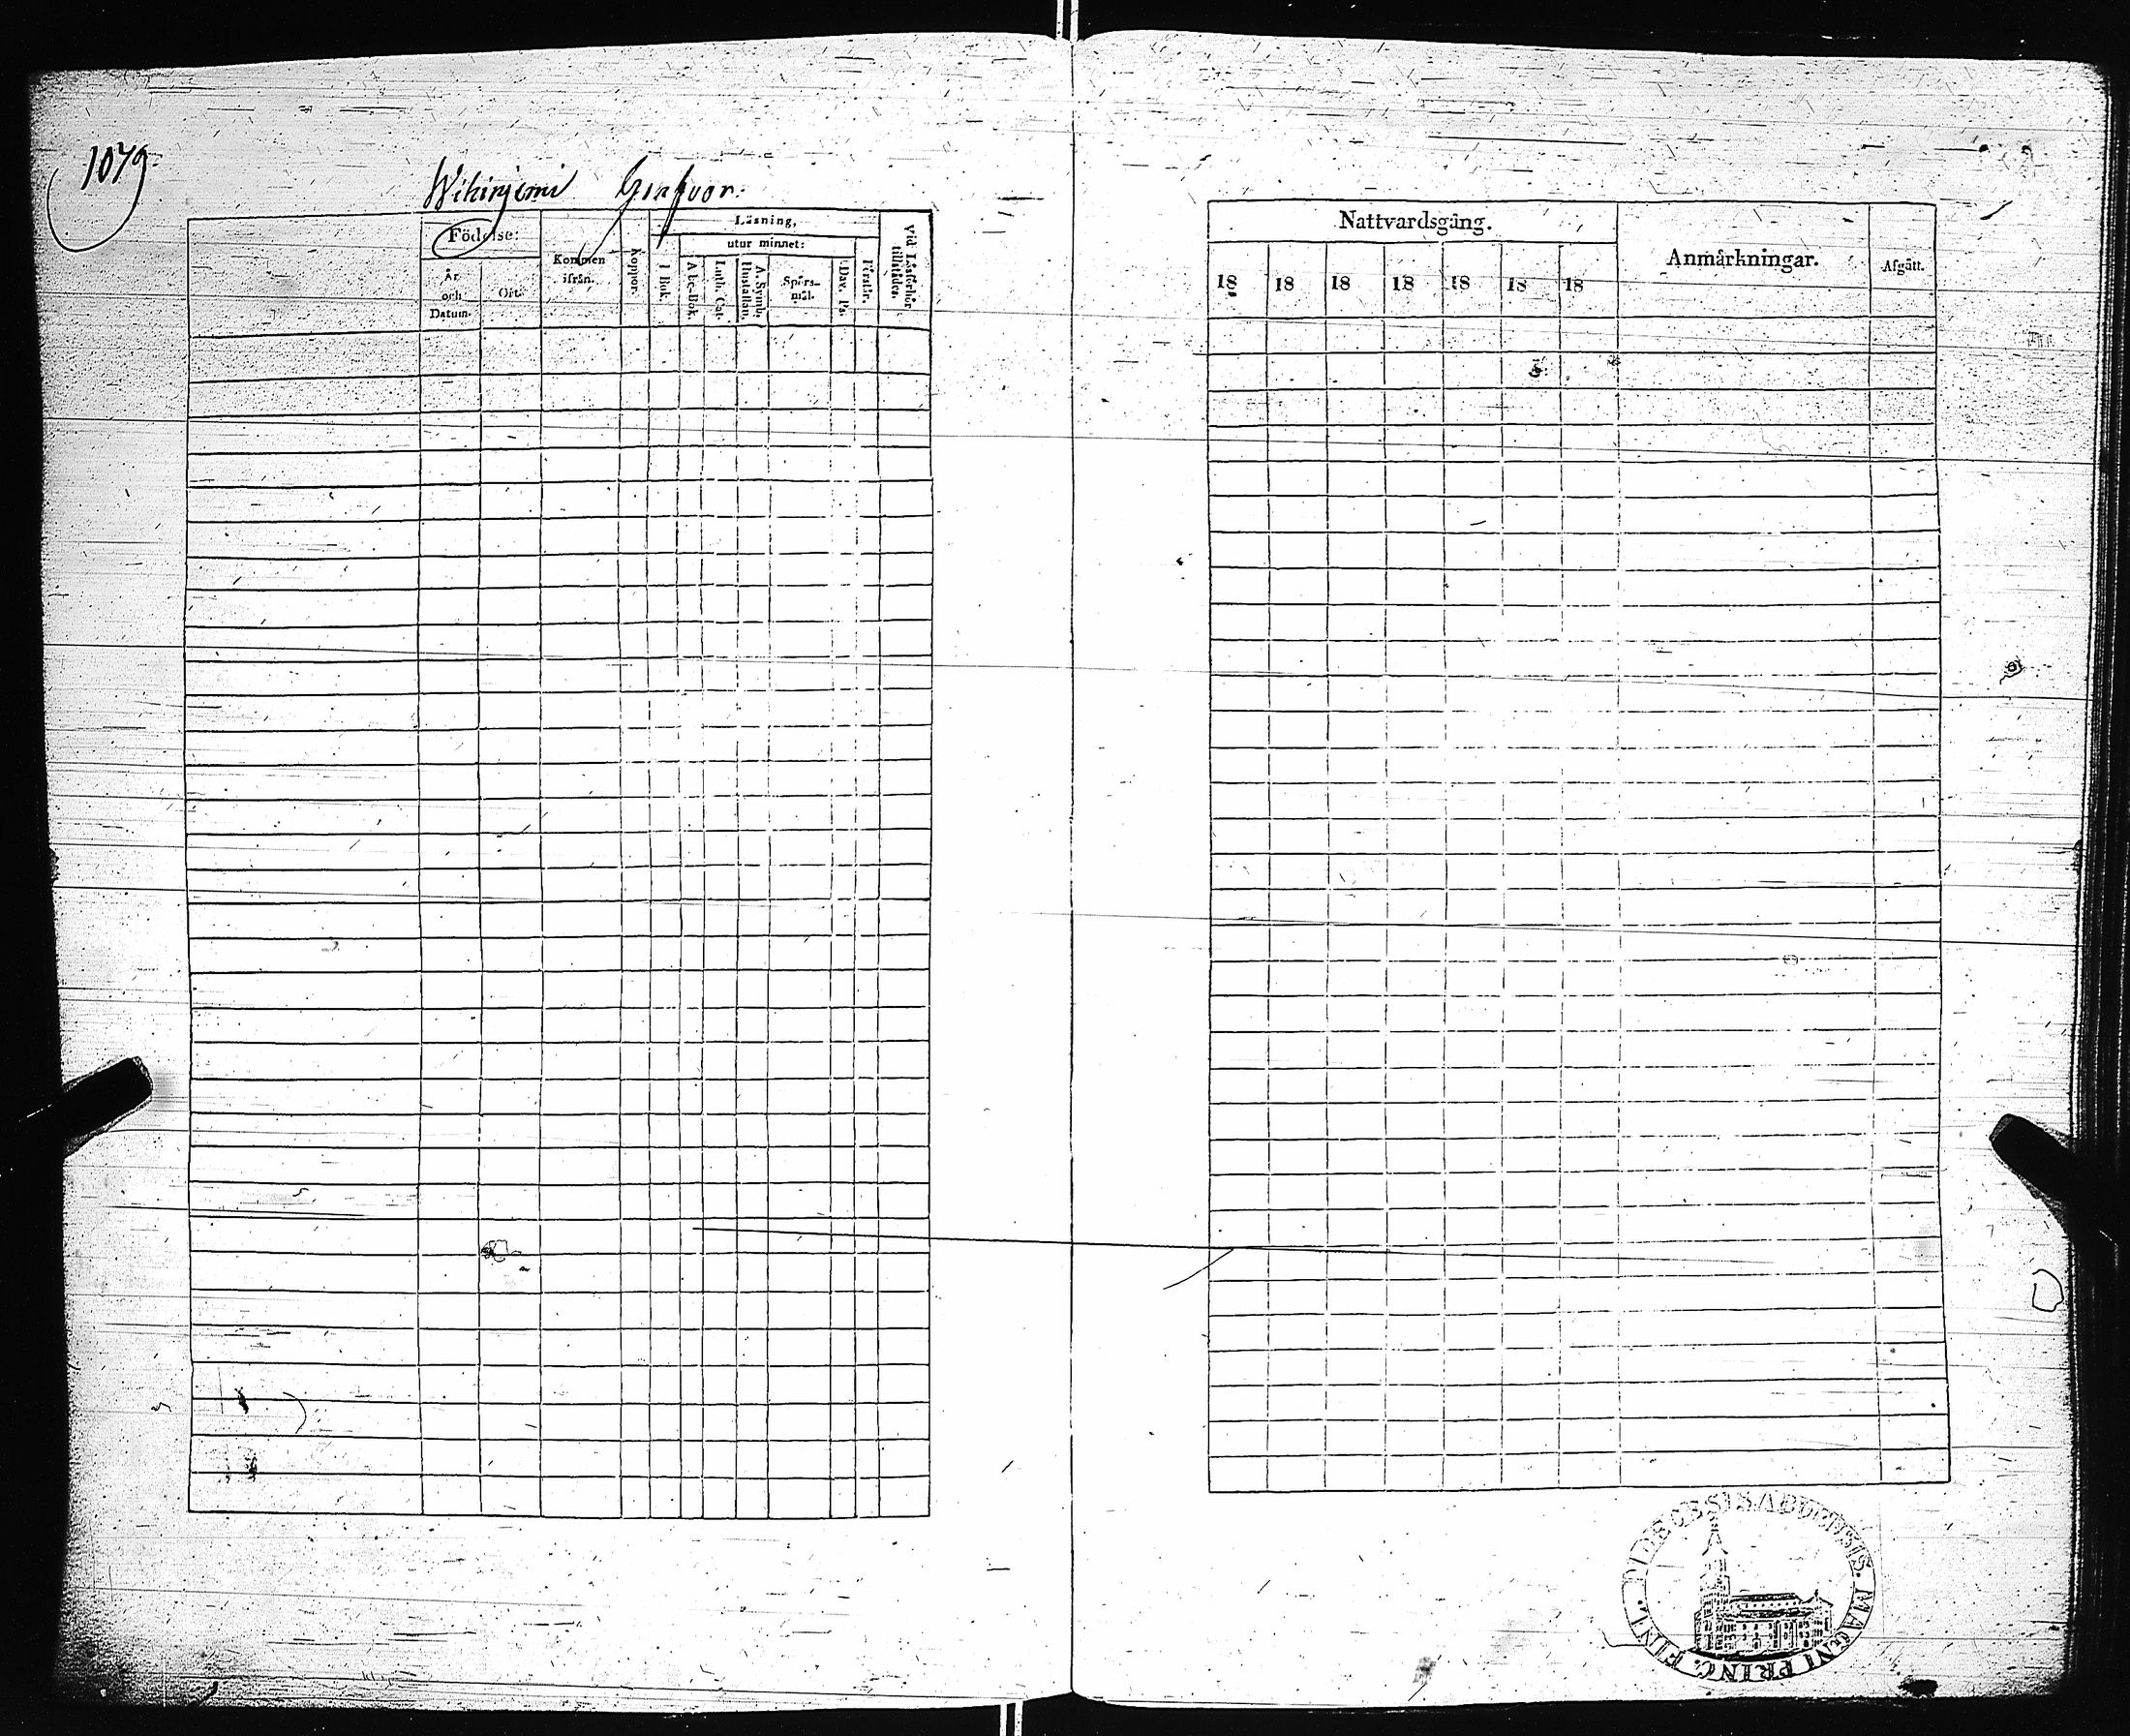 1079.
Wihinjemi
Födelse:
År
och
Datum.
Ort.
Kommen
ifrån.
Koppor.
Läsning,
utur minnet:
I Bok.
Abc-Bok.
Luth. Cat.
A. Symb.
Hustaflan.
Spörs-
mål.
Dav. Ps.
Förstår.
Vid Läsförhör
tillstädes.
Nattvardsgång.
18 18 18 18 18 18 18
Anmärkningar.
Afgått.
DIOECESIS ABOENSIS. MAGNI PRINC. FINL.